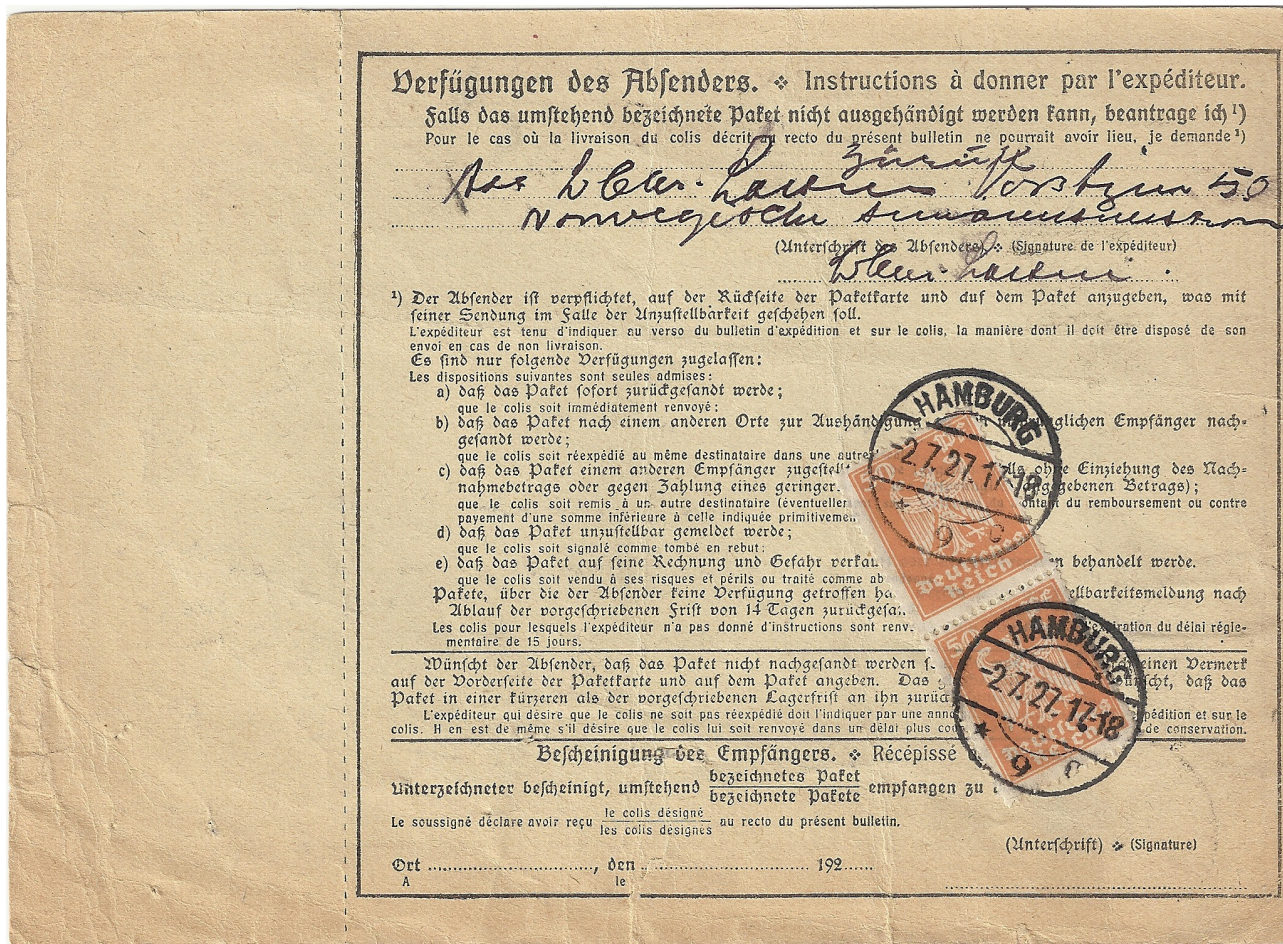 Verfügungen des Absenders. ❖ Instructions à donner par l'expéditeur.
Falls das umstehend bezeichnete Paket nicht ausgehändigt werden kann, beantrage ich ¹)
Pour le cas où la livraison du colis décrit au recto du présent bulletin ne pourrait avoir lieu, je demande ¹)
zurück
50
Norwegische
(Unterschrift des Absenders) ❖ (Signature de l'expéditeur)
¹) Der Absender ist verpflichtet, auf der Rückseite der Paketkarte und auf dem Paket anzugeben, was mit
seiner Sendung im Falle der Unzustellbarkeit geschehen soll.
L'expéditeur est tenu d'indiquer au verso du bulletin d'expédition et sur le colis, la manière dont il doit être disposé de son
envoi en cas de non livraison.
Es sind nur folgende Verfügungen zugelassen:
Les dispositions suivantes sont seules admises:
a) daß das Paket sofort zurückgesandt werde;
que le colis soit immédiatement renvoyé;
b) daß das Paket nach einem anderen Orte zur Aushändigung glichen Empfänger nach-
gesandt werde;
que le colis soit réexpédié au même destinataire dans une autre
c) daß das Paket einem anderen Empfänger zugestel lls ohne Einziehung des Nach-
nahmebetrags oder gegen Zahlung eines geringer. gegebenen Betrags);
que le colis soit remis à un autre destinataire (éventuellem ontant du remboursement ou contre
payement d'une somme inférieure à celle indiquée primitivemen
d) daß das Paket unzustellbar gemeldet werde;
que le colis soit signalé comme tombé en rebut;
e) daß das Paket auf seine Rechnung und Gefahr verkau n behandelt werde.
que le colis soit vendu à ses risques et périls ou traité comme ab
Pakete, über die der Absender keine Verfügung getroffen ha ellbarkeitsmeldung nach
Ablauf der vorgeschriebenen Frist von 14 Tagen zurückgesa
Les colis pour lesquels l'expéditeur n'a pas donné d'instructions sont renv piration du délai régle-
mentaire de 15 jours.
Wünscht der Absender, daß das Paket nicht nachgesandt werden s einen Vermerk
auf der Vorderseite der Paketkarte und auf dem Paket angeben. Das g wünscht, daß das
Paket in einer kürzeren als der vorgeschriebenen Lagerfrist an ihn zurück
L'expéditeur qui désire que le colis ne soit pas réexpédié doit l'indiquer par une anno pédition et sur le
colis. Il en est de même s'il désire que le colis lui soit renvoyé dans un délai plus cou de conservation.
Bescheinigung des Empfängers. ❖ Récépissé
Unterzeichneter bescheinigt, umstehend bezeichnetes Paket
bezeichnete Pakete empfangen zu
Le soussigné déclare avoir reçu le colis désigné
les colis désignés au recto du présent bulletin.
(Unterschrift) ❖ (Signature)
Ort ........, den ........ 192....
A le
HAMBURG
-2.7.27.17-18
* 9 c
50
Deutsches
Reich
HAMBURG
-2.7.27.17-18
* 9 c
50